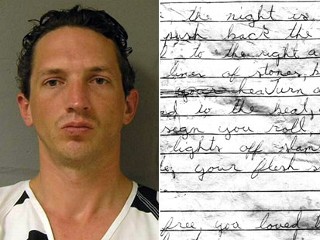 the night is
push back the
to the right a
lines of stones, b
your hea Turn a
ed to the heat,
sign you roll,
lights off slam
your flesh s
free you loved t